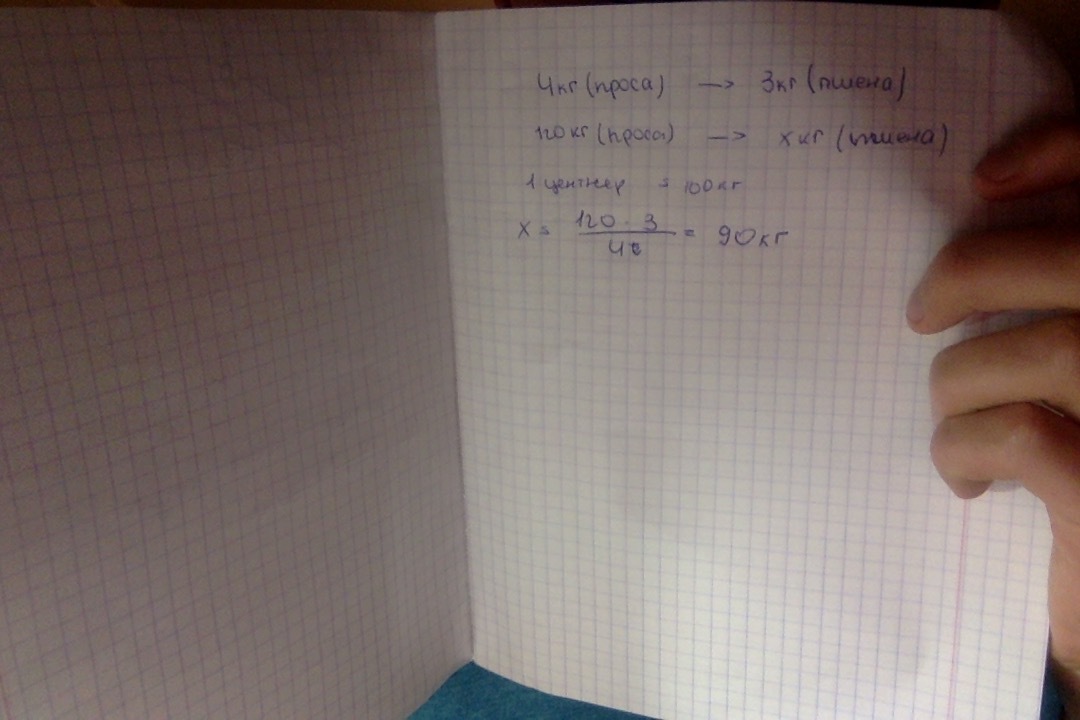 4кг (проса) —> 3кг (пшена)
120кг (проса) —> xкг (пшена)
1 центнер = 100кг
x = 120 · 3 / 4 = 90кг